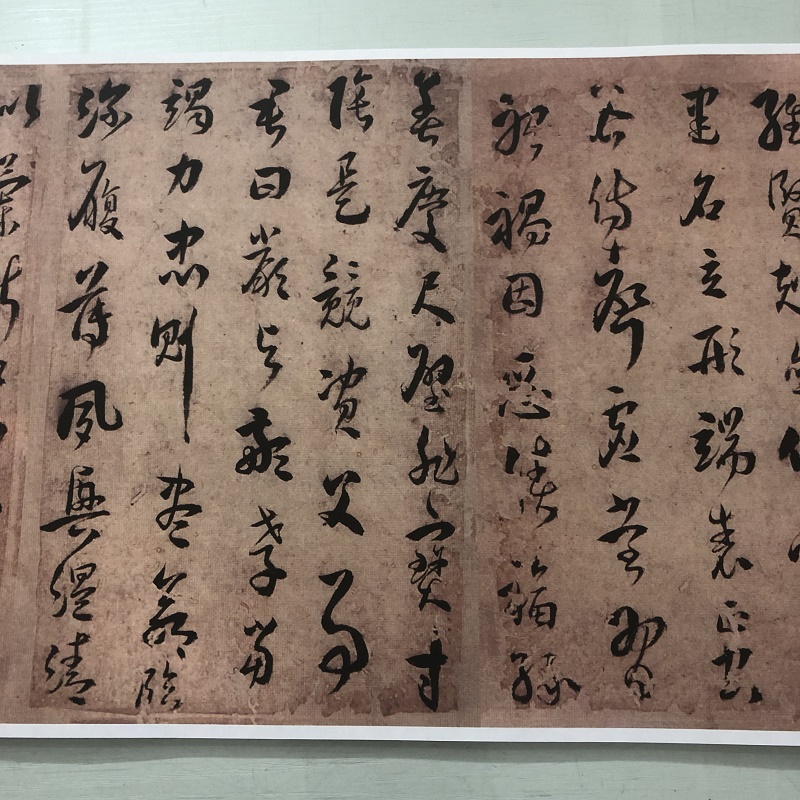 維賢剋念作
建名立形端表正空
谷傳聲虛堂習
聽禍因惡積福緣
善慶尺璧非寶寸
陰是競資父事
君曰嚴與敬孝當
竭力忠則盡命臨
深履薄夙興溫凊
似蘭斯